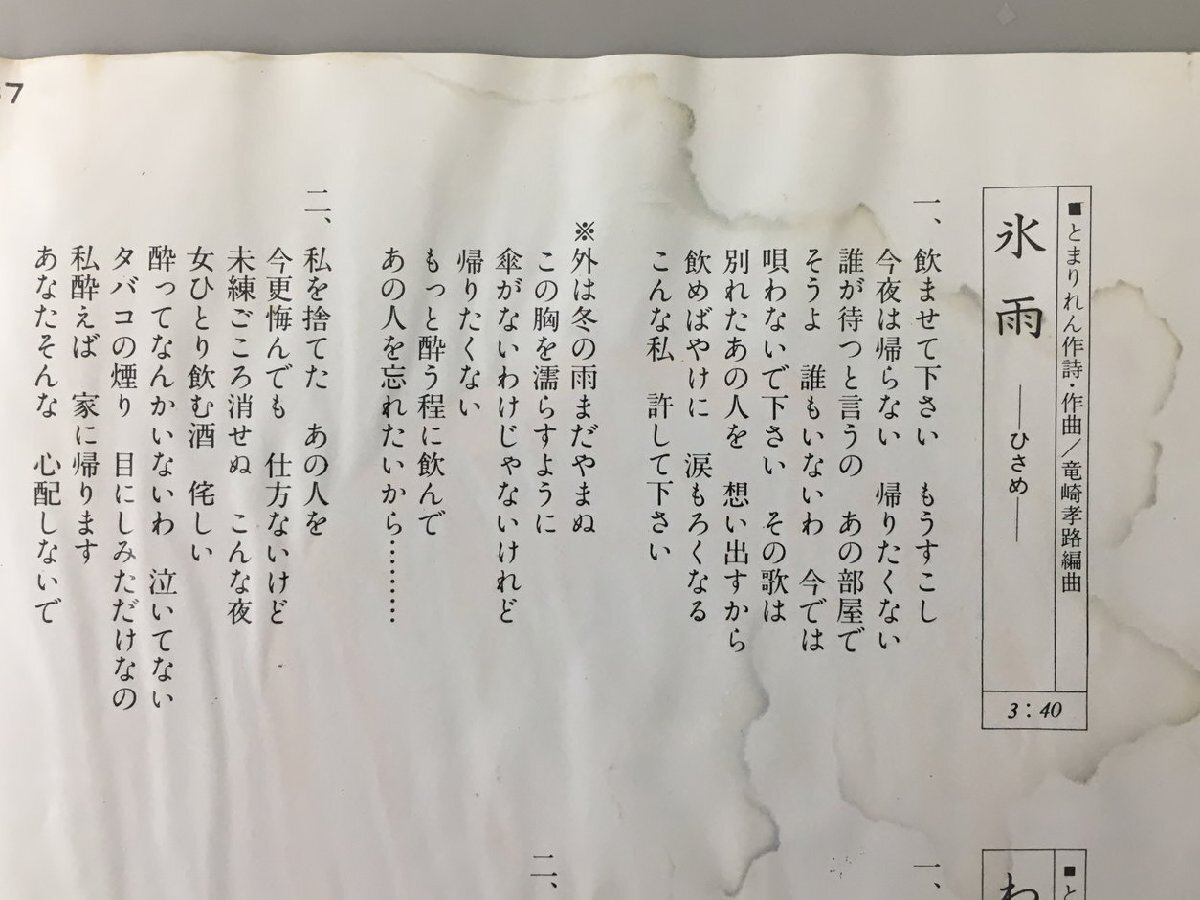 ■とまりれん作詩・作曲／竜崎孝路編曲
氷雨 ――ひさめ――
3：40
一、飲ませて下さい　もうすこし
今夜は帰らない　帰りたくない
誰が待つと言うの　あの部屋で
そうよ　誰もいないわ　今では
唄わないで下さい　その歌は
別れたあの人を　想い出すから
飲めばやけに　涙もろくなる
こんな私　許して下さい
※外は冬の雨まだやまぬ
この胸を濡らすように
傘がないわけじゃないけれど
帰りたくない
もっと酔う程に飲んで
あの人を忘れたいから………
二、私を捨てた　あの人を
今更悔んでも　仕方ないけど
未練ごころ消せぬ　こんな夜
女ひとり飲む酒　侘しい
酔ってなんかいないわ　泣いてない
タバコの煙り　目にしみただけなの
私酔えば　家に帰ります
あなたそんな　心配しないで
7
■と
わ
一、
二、